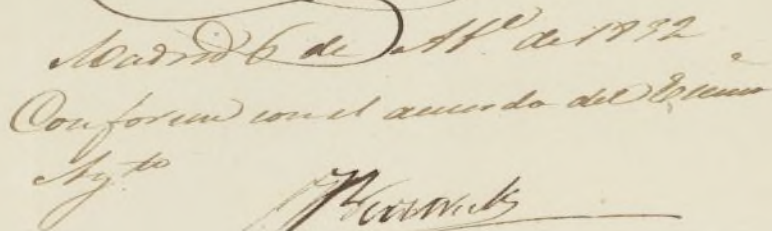 Madrid 6 de Ab.l de 1892
Conforme con el acuerdo del Excmo
Ay.to